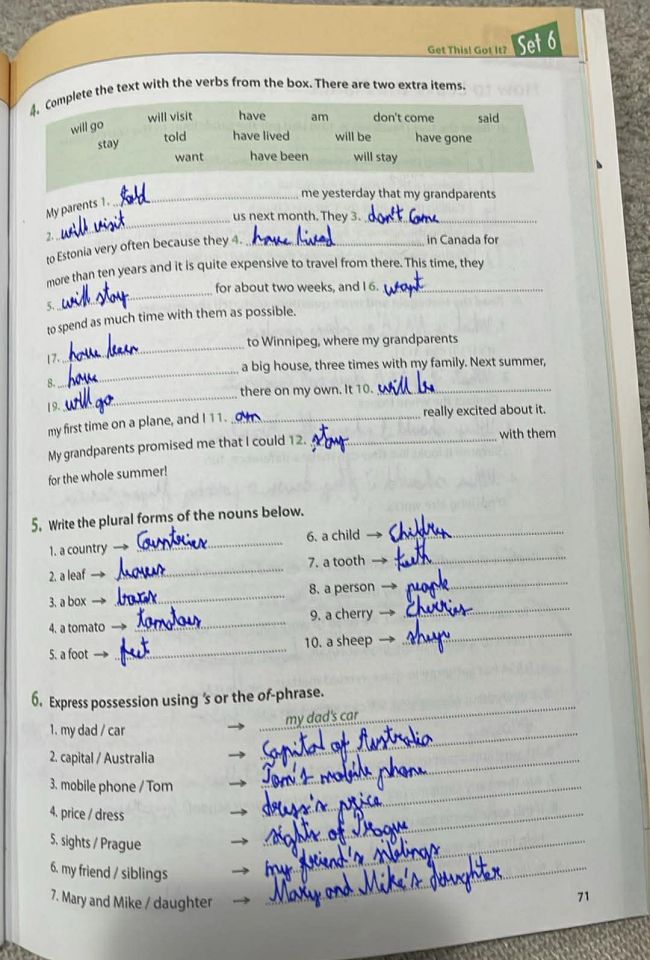 Get This! Got It? Set 6
4. Complete the text with the verbs from the box. There are two extra items.
will go will visit have am don't come said
stay told have lived will be have gone
want have been will stay
My parents 1. told me yesterday that my grandparents
2. will visit us next month. They 3. don't come
to Estonia very often because they 4. have lived in Canada for
more than ten years and it is quite expensive to travel from there. This time, they
5. will stay for about two weeks, and I 6. want
to spend as much time with them as possible.
I 7. have been to Winnipeg, where my grandparents
8. have a big house, three times with my family. Next summer,
I 9. will go there on my own. It 10. will be
my first time on a plane, and I 11. am really excited about it.
My grandparents promised me that I could 12. stay with them
for the whole summer!
5. Write the plural forms of the nouns below.
1. a country → Countries 6. a child → Children
2. a leaf → leaves 7. a tooth → teeth
3. a box → boxes 8. a person → people
4. a tomato → tomatoes 9. a cherry → Cherries
5. a foot → feet 10. a sheep → sheep
6. Express possession using 's or the of-phrase.
1. my dad / car → my dad's car
2. capital / Australia → Capital of Australia
3. mobile phone / Tom → Tom's mobile phone
4. price / dress → dress's price
5. sights / Prague → sights of Prague
6. my friend / siblings → my friend's siblings
7. Mary and Mike / daughter → Mary and Mike's daughter
71